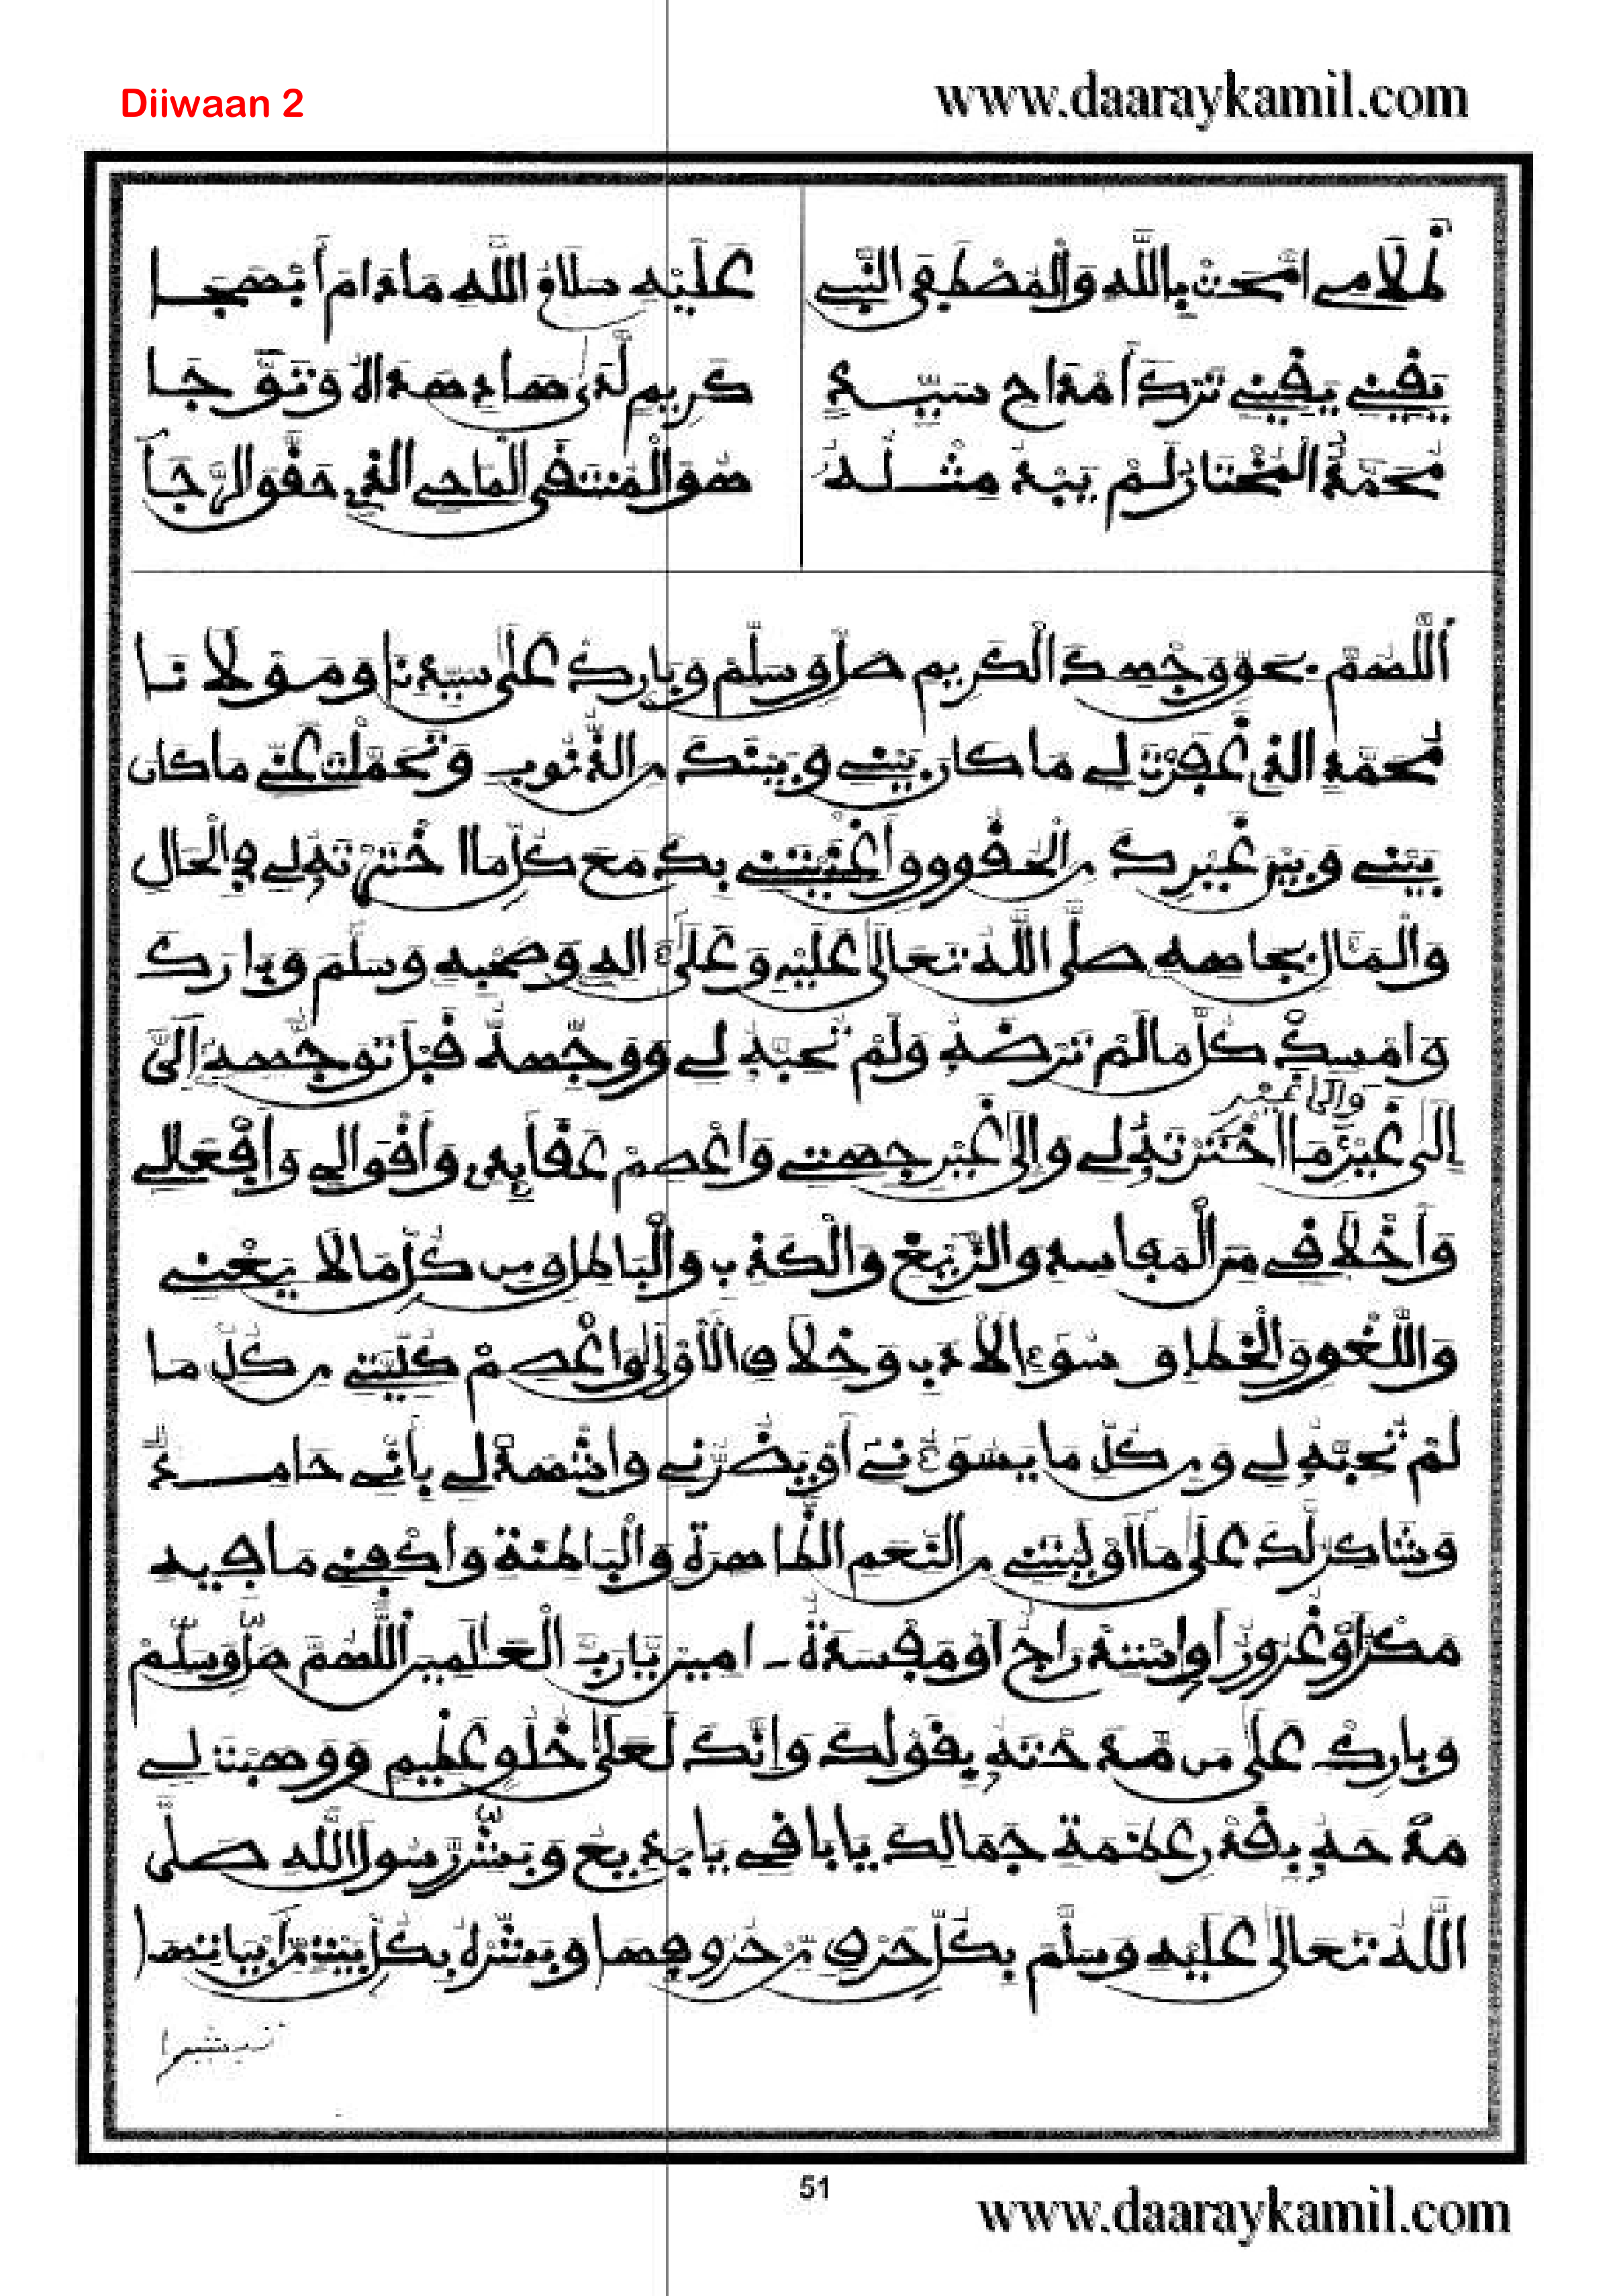 Diiwaan 2
www.daaraykamil.com
ظلامي امّحت بالله والمصطفى النبي عليه سلام الله مادام أبهجا
يقيني يقيني ترك أمداح سيد كريم لدى هاد هداة وتوّجا
محمد المختار لم يبد مثله هو المنتقى الماحي الذي حقق الرجا
اللهم بحق وجهك الكريم صل وسلم وبارك على سيدنا ومولانا
محمد الذي غفرت لي ما كان بيني وبينك من الذنوب وتحملت عني ما كان
بيني وبين غيرك من الحقوق وأغنيتني بك مع كل ما اخترته لي في الحال
والمئال بجاهه صلى الله تعالى عليه وعلى ءاله وصحبه وسلم وبارك
وامسك كل ما لم ترضه ولم تحبه لي ووجهه قبل توجهه إليّ
إلى غير ما اخترته لي وإلى غير جهتي واعصم عقايدي وأقوالي وأفعالي
وإلى غيري
وأخلاقي من المفاسد والزيغ والكذب والباطل ومن كل ما لا يعني
واللغو والخطإ وسوء الأدب وخلاف الأولى واعصم كليتي من كل ما
لم تحبه لي ومن كل ما يسوءني أو يضرني واشهد لي بأني حامد
وشاكر لك على ما أوليتني من النعم الظاهرة والباطنة واكفني ما فيه
مكر أو غرور أو استدراج أو مفسدة - امين يا رب العالمين اللهم صل وسلم
وبارك على من مدحته بقولك وإنك لعلى خلق عظيم ووهبت لي
مدحه بقدر عظمة جمالك يا باقي يا بديع وبشر رسول الله صلى
الله تعالى عليه وسلم بكل حرف من حروفها وبشره بكل بيت من أبياتها
تبشيرا
51
www.daaraykamil.com